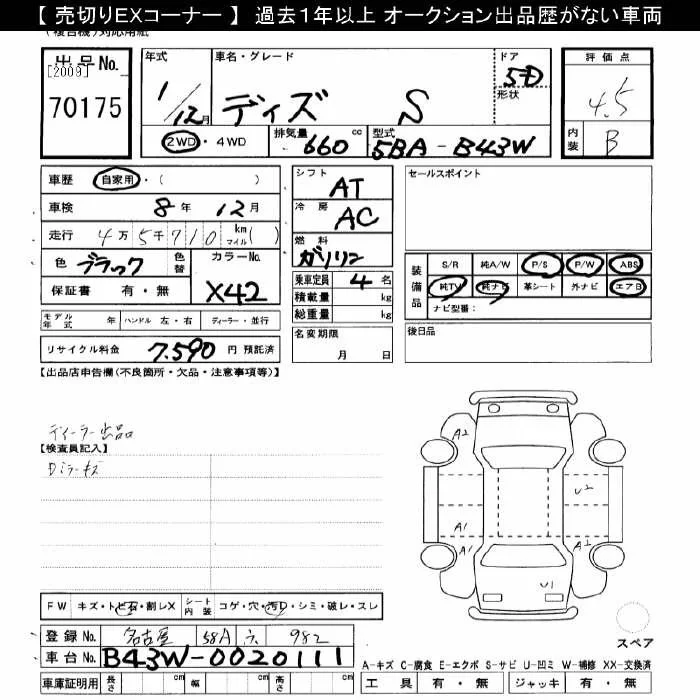 【 売切りEXコーナー 】 過去1年以上 オークション出品歴がない車両
(複合機)対応用紙
出品No.
[2009]
70175
年式 1/12月
車名・グレード ディズ S
ドア 5D
形状
2WD・4WD
排気量 660 cc
型式 5BA-B43W
評価点 4.5
内装 B
車歴 自家用・( )
車検 8年 12月
走行 4万5千710 km マイル( )
色 ブラック 色替 カラーNo. X42
保証書 有・無
シフト AT
冷房 AC
燃料 ガソリン
乗車定員 4名
積載量 kg
総重量 kg
セールスポイント
装備品 S/R 純A/W P/S P/W ABS
純TV 純ナビ 革シート 外ナビ エアB
ナビ型番:
モデル年式 年 ハンドル 左・右 ディーラー・並行
名変期限 月 日
後日品
リサイクル料金 7.590 円 預託済
【出品店申告欄(不良箇所・欠品・注意事項等)】
ディーラー出品
【検査員記入】
Dミラーキズ
A2
U2
A1
A1
A2
U1
FW キズ・トビ石・割レX シート内装 コゲ・穴・汚レ・シミ・破レ・スレ
登録No. 名古屋 58A 982
車台No. B43W-0020111
車庫証明用 長さ cm 幅 cm 高さ cm
スペア
A-キズ C-腐食 E-エクボ S-サビ U-凹ミ W-補修 XX-交換済
工具 有・無 ジャッキ 有・無